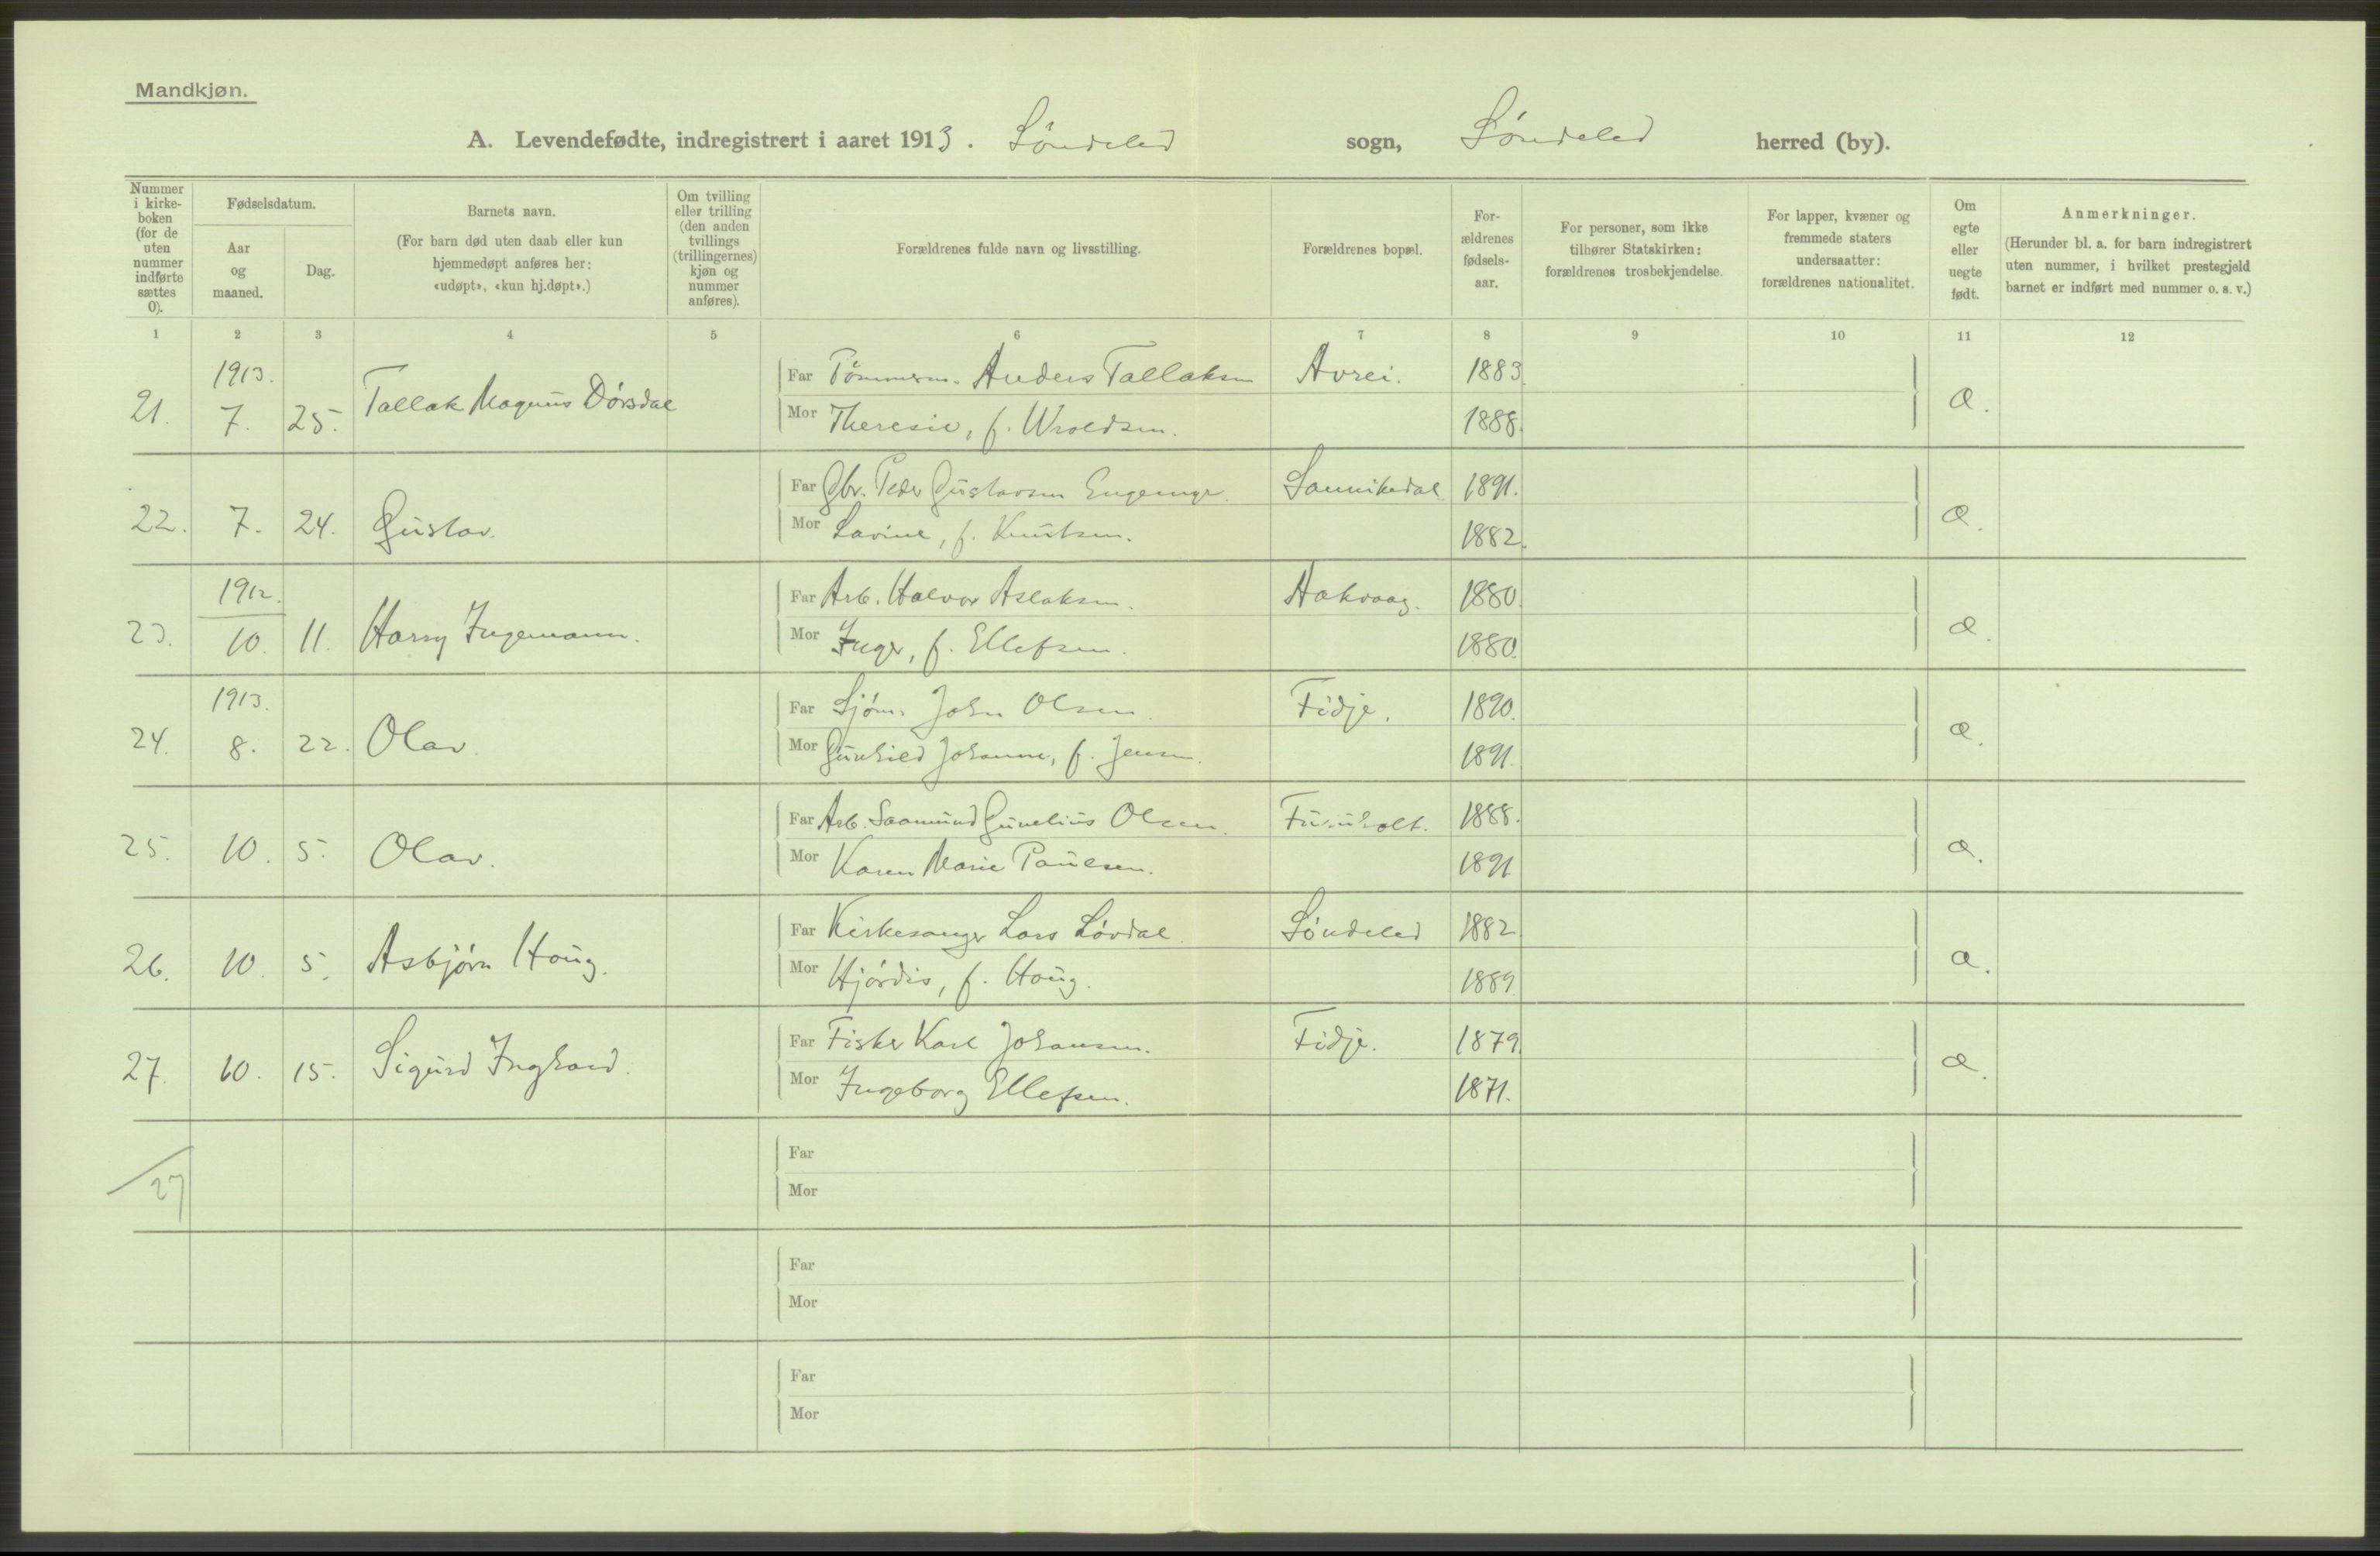 Mandkjøn.
A. Levendefødte, indregistrert i aaret 1913. Søndeled sogn, Søndeled herred (by).
Nummer i kirke-boken (for de uten nummer indførte sættes 0).
Fødselsdatum.
Aar og maaned.
Dag.
Barnets navn.
(For barn død uten daab eller kun hjemmedøpt anføres her: «udøpt», «kun hj.døpt».)
Om tvilling eller trilling (den anden tvillings (trillingernes) kjøn og nummer anføres).
Forældrenes fulde navn og livsstilling.
Forældrenes bopæl.
For-ældrenes fødsels-aar.
For personer, som ikke tilhører Statskirken: forældrenes trosbekjendelse.
For lapper, kvæner og fremmede staters undersaatter: forældrenes nationalitet.
Om egte eller uegte født.
Anmerkninger.
(Herunder bl. a. for barn indregistrert uten nummer, i hvilket prestegjeld barnet er indført med nummer o. s. v.)
1 2 3 4 5 6 7 8 9 10 11 12
1913.
Far Tømmerm. Anders Tallaksen Avrei. 1883
21. 7. 25. Tallak Magnus Dørsdal
Mor Theresie, f. Wroldsen. 1888.
Far Gbr. Peder Gustavsen Sannikedal 1891.
22. 7. 24. Gustav.
Mor Lavine, f. Knutsen. 1882.
1912.
Far Arb. Halvor Aslaksen. Hakvaag. 1880.
23. 10. 11. Harry Ingemann.
Mor Inger, f. Ellefsen. 1880.
1913.
Far Sjøm. John Olsen. Fidje. 1890.
24. 8. 22. Olav.
Mor Gunhild Johanne, f. Jensen. 1891.
Far Arb. Saamund Gunelius Olsen. 1888.
25. 10. 5. Olav.
Mor Karen Marie Paulsen. 1891
Far Kirkesanger Lars Løvdal. Søndeled 1882
26. 10. 5. Asbjørn Houg.
Mor Hjørdis, f. Houg. 1889.
Far Fisker Karl Johansen. Fidje. 1879.
27. 10. 15. Sigurd Inghard.
Mor Ingeborg Ellefsen. 1871.
Far
27
Mor
Far
Mor
Far
Mor